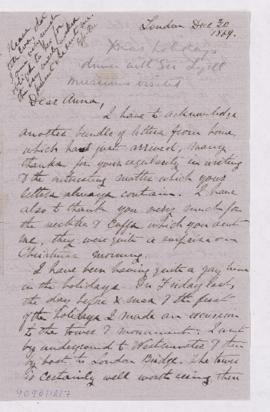 London Dec 30
1869.
Xmas holidays
dinner with Sir Lyell
museums visited
Dear Anna,
I have to acknowledge
another bundle of letters from home,
which have just arrived, many
thanks for your regularity in writing
& the interesting matter which your
letters always contain. I have
also to thank you very much for
the necktie & Cuffs which you sent
me, they were quite a surprise on
Christmas morning.
I have been having quite a gay time
in the holidays. On Friday last,
the day before Xmas & the first
of the holidays I made an excursion
to the tower & monument. I went
by underground to Westminster & then
by boat to London Bridge. The tower
is certainly well worth seeing, then